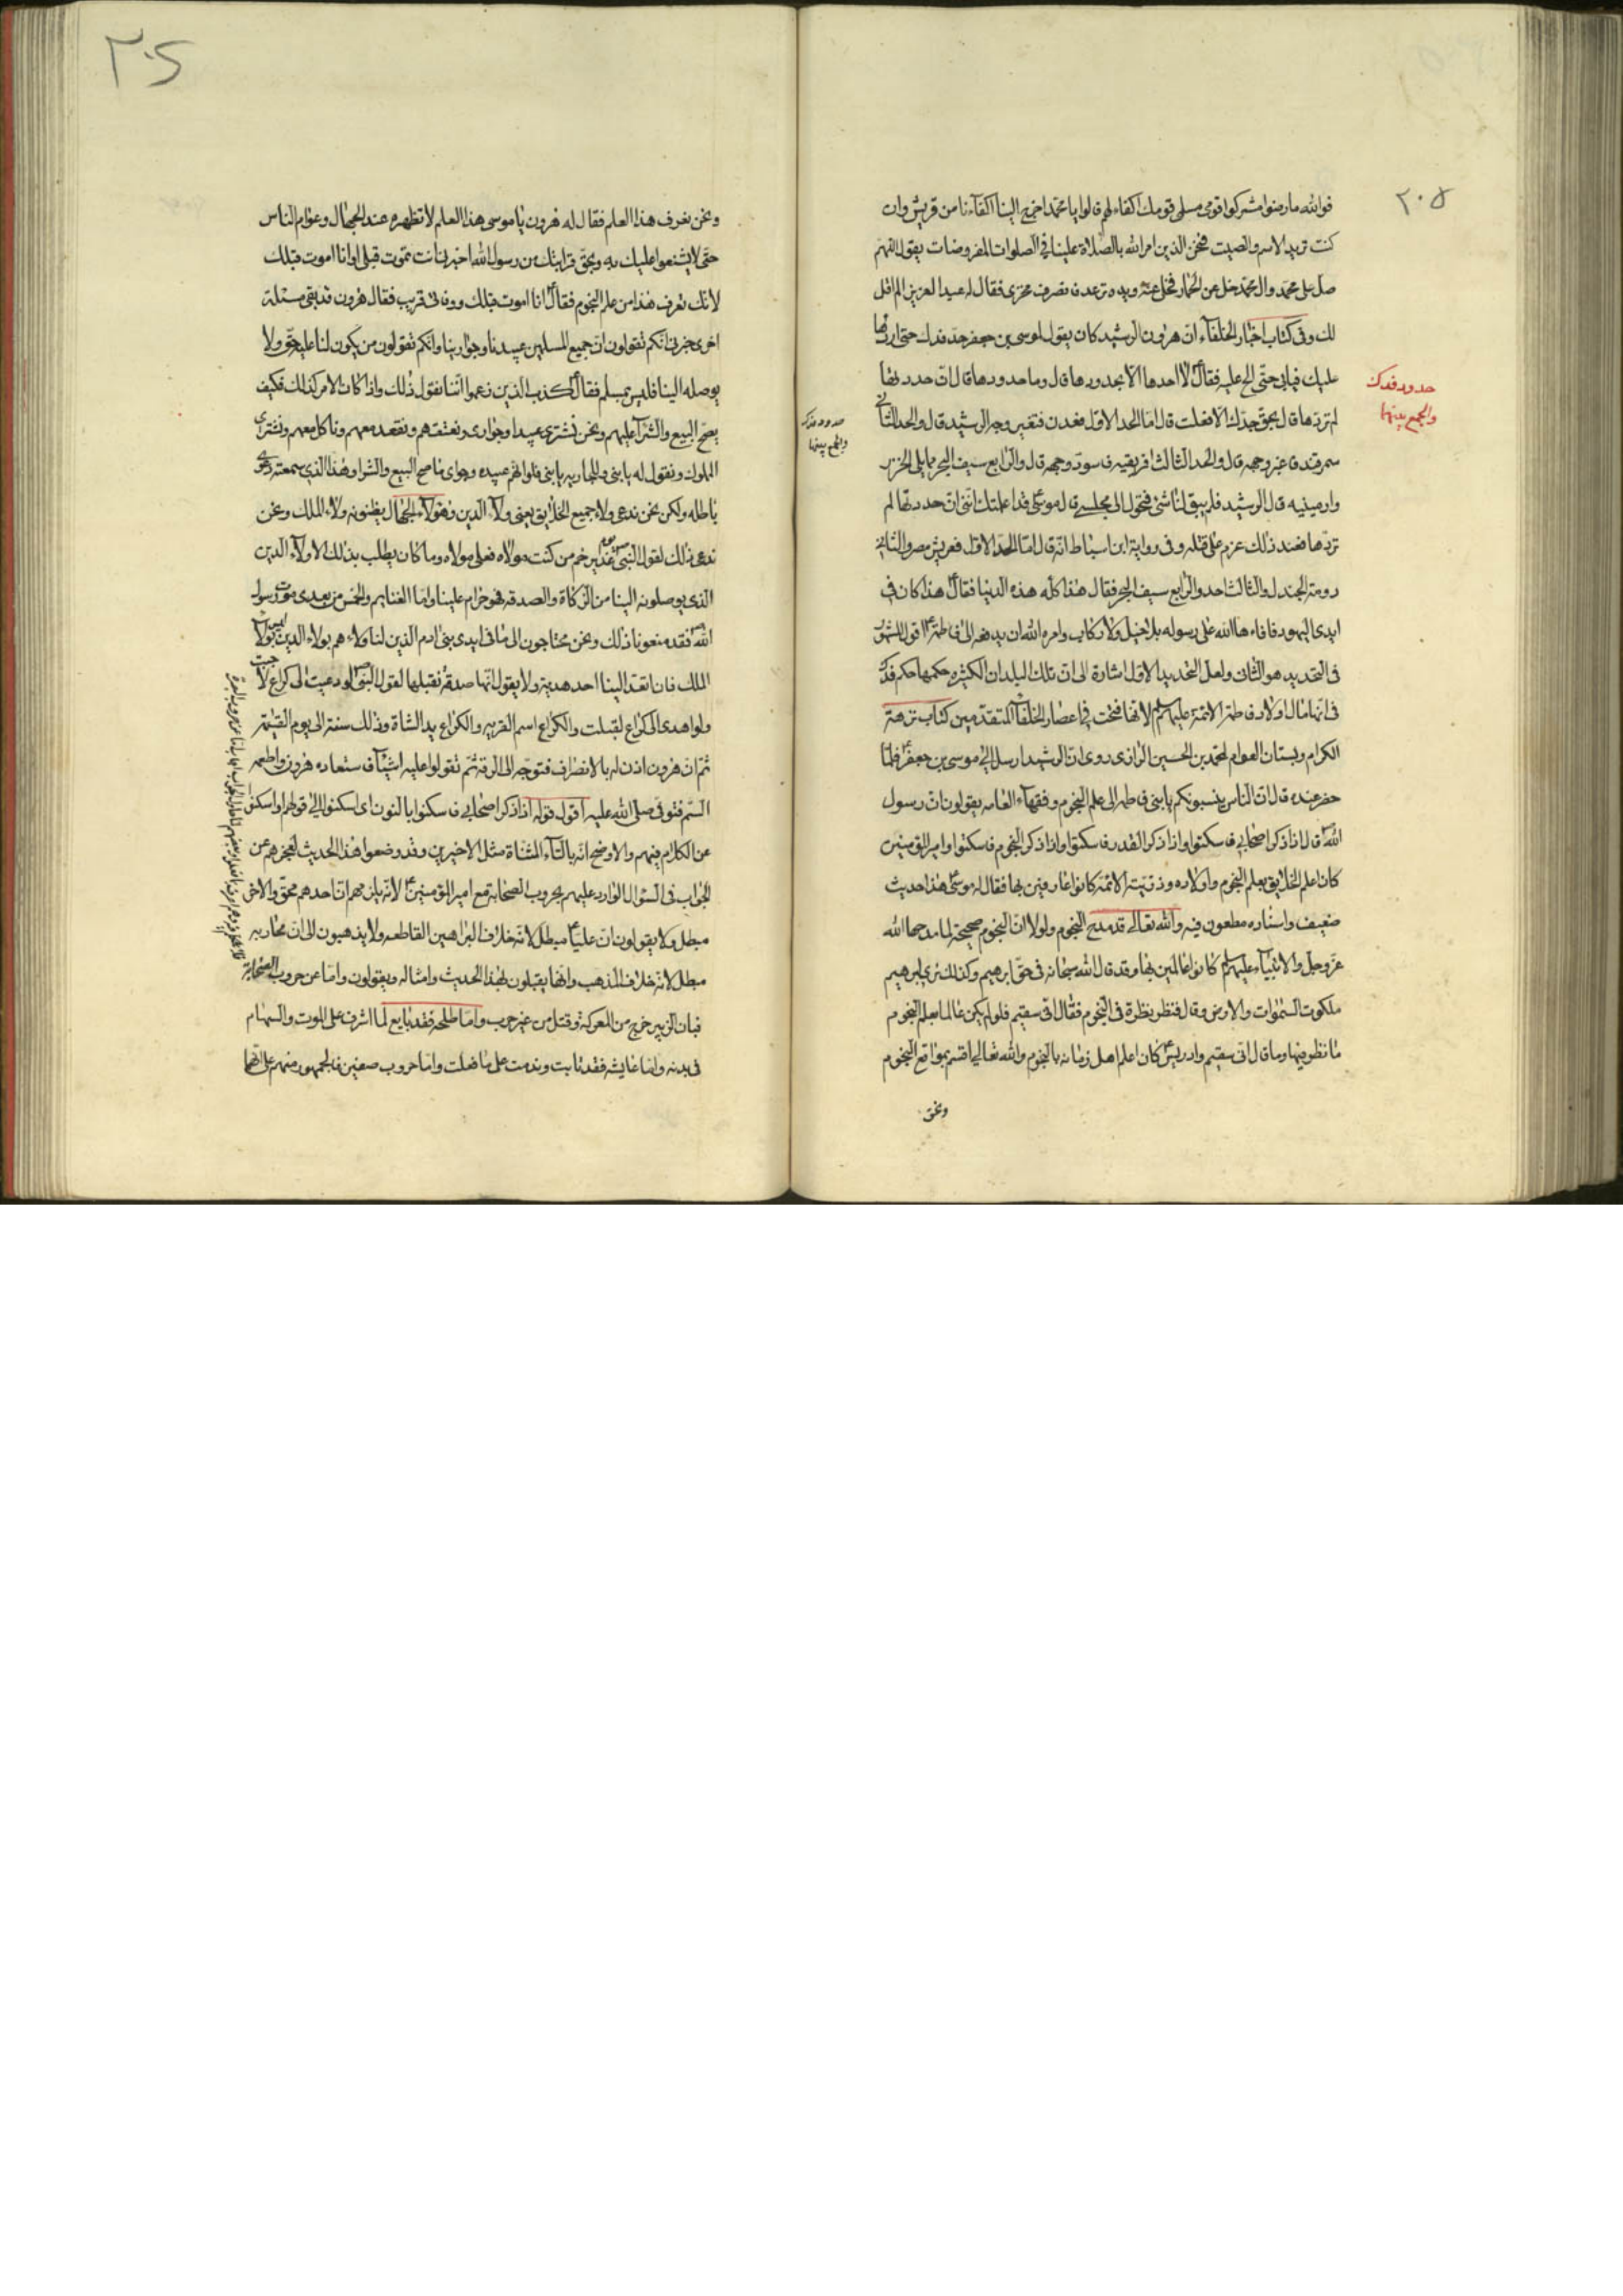 ٢٠٥
فوالله ما رضوا مشركوا قومى مسلمى قومك اكفاء لهم قالوا يا محمد اخرج الينا اكفآءنا من قريش وان
كنت تريد الاسم والصيت فنحن الذين امر الله بالصلاة علينا فى الصلوات المفروضات يقول اللهم
صل على محمد وال محمد خل عن الحمار فخل عنه ويده ترعد فانصرف مخزى فقال له عبد العزيز الم اقل
لك وفى كتاب اخبار الخلفآء ان هرون الرشيد كان يقول لموسى بن جعفر حد فدك حتى اردها
عليك فيابى حتى الح عليه فقال ع لا احدها الا بحدودها قال وما حدودها قال ان حددتها
لم تردها قال بحق جدك الا فعلت قال اما الحد الاول فعدن فتغير وجه الرشيد قال والحد الثانى
سمرقند فاغبر وجهه قال والحد الثالث افريقيه فاسود وجهه قال والرابع سيف البحر مما يلى الخزر
وارمينيه قال الرشيد فلم يبق لنا شئ فتحول الى مجلسى قال موسى ع قد اعلمتك اننى ان حددتها لم
تردها فعند ذلك عزم على قتله وفى رواية ابن اسباط انه قال اما الحد الاول فعريش مصر والثانى
دومة الجندل والثالث احد والرابع سيف البحر فقال هذا كله هذه الدنيا فقال ع هذا كان فى
ايدى اليهود فافاءها الله على رسوله بلا خيل ولا ركاب وامره الله ان يدفعه الى فاطمه ع اقول المشهور
فى التحديد هو الثانى ولعل التحديد الاول اشارة الى ان تلك البلدان الكثيره حكمها حكم فدك
فى انها مال اولاد فاطمة الائمة عليهم السلم لانها فتحت فى اعصار الخلفآء المتقدمين كتاب نزهة
الكرام وبستان العوام لمحمد بن الحسين الرازى روى ان الرشيد ارسل الى موسى بن جعفر ع فلما
حضر عنده قال ان الناس ينسبونكم يا بنى فاطمه الى علم النجوم وفقهآء العامه يقولون ان رسول
الله ص قال اذا ذكر اصحابى فاسكتوا واذا ذكر القدر فاسكتوا واذا ذكر النجوم فاسكتوا وامير المؤمنين
كان اعلم الخلايق بعلم النجوم واولاده وذريته الائمة كانوا عارفين بها فقال له موسى ع هذا حديث
ضعيف واسناده مطعون فيه والله تعالى قد مدح النجوم ولولا ان النجوم صحيحة لما مدحها الله
عز وجل والانبيآء عليهم السلم كانوا عالمين بها وقد قال الله سبحانه فى حق ابرهيم وكذلك نرى ابرهيم
ملكوت السموات والارض وقال فنظر نظرة فى النجوم فقال انى سقيم فلو لم يكن عالما بعلم النجوم
ما نظر فيها وما قال انى سقيم وادريس ع كان اعلم اهل زمانه بالنجوم والله تعالى اقسم بمواقع النجوم
ونحن
حدود فدك
والجمع بينها
حدود فدك
والجمع بينها
٢٠٥
ونحن نعرف هذا العلم فقال له هرون يا موسى هذا العلم لا تظهره عند الجهال وعوام الناس
حتى لا يشنعوا عليك به وبحق قرابتك من رسول الله اخبرنى انت تموت قبلى او انا اموت قبلك
لانك تعرف هذا من علم النجوم فقال ع انا اموت قبلك ووفاتى قريب فقال هرون قد بقى مسئلة
اخرى خبرنى انكم تقولون ان جميع المسلمين عبيدنا وجوارينا وانكم تقولون من يكون لنا عليه حق ولا
يوصله الينا فليس بمسلم فقال ع كذب الذين زعموا اننا نقول ذلك واذا كان الامر كذلك فكيف
يصح البيع والشرآء عليهم ونحن نشترى عبيدا وجوارى ونعتقهم ونقعد معهم وناكل معهم ونشترى
المملوك ونقول له يا بنى وللجاريه يا بنتى فلو انهم عبيده وجوارى ما صح البيع والشرا وهذا الذى سمعته دعوى
باطله ولكن نحن ندعى ولاء جميع الخلايق يعنى ولآء الدين وهؤلآء الجهال يظنونه ولاء الملك ونحن
ندعى ذلك لقول النبى ص يوم غدير خم من كنت مولاه فعلى مولاه وما كان يطلب بذلك الا ولآء الدين
الذى يوصلونه الينا من الزكاة والصدقه فهو حرام علينا واما الغنايم والخمس من بعد موت رسول
الله ص فقد منعونا ذلك ونحن محتاجون الى ما فى ايدى بنى ادم الذين لنا ولاءهم بولاء الدين ليس بولآء
الملك فان انفذ الينا احد هدية ولا يقول انها صدقة نقبلها لقول النبى ص لو دعيت الى كراع لاجبت
ولو اهدى الى كراع لقبلت والكراع اسم القريه والكراع يد الشاة وذلك سنة الى يوم القيمة
ثم ان هرون اذن له بالانصراف فتوجه الى الرقة ثم تقولوا عليه اشيآء فاستعاده هرون واطعمه
السم فتوفى صلى الله عليه اقول قوله اذا ذكر اصحابى فاسكنوا بالنون اى اسكنوا الى قولهم او اسكتوا
عن الكلام فيهم والاوضح انه بالتآء المثناة مثل الاخيرين وقد وضعوا هذا الحديث لعجزهم عن
الجواب فى السؤال الوارد عليهم بحروب الصحابة مع امير المؤمنين ع لانه يلزمهم ان احدهم محق والاخر
مبطل ولا يقولون ان عليا ع مبطل لانه خلاف البراهين القاطعه ولا يذهبون الى ان محاربه
مبطل لانه خلاف المذهب وانما يقبلون بهذا الحديث وامثاله ويقولون واما عن حروب الصحابة
فبان الزبير خرج من المعركة وقتل من غير حرب واما طلحه فقد بايع لما اشرف على الموت والسهام
فى بدنه واما عايشه فقد تابت وندمت على ما فعلت واما حروب صفين فالجمهور منهم على انها